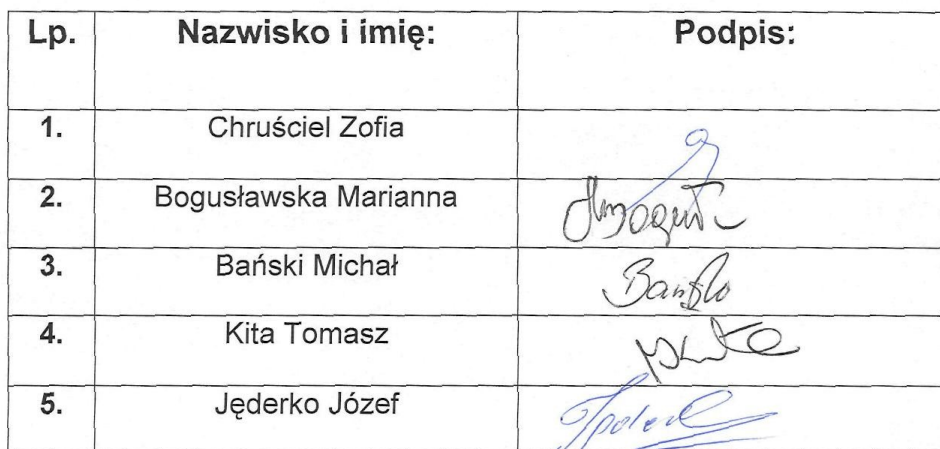 Lp. Nazwisko i imię: Podpis:
1. Chruściel Zofia
2. Bogusławska Marianna
3. Bański Michał
4. Kita Tomasz
5. Jęderko Józef